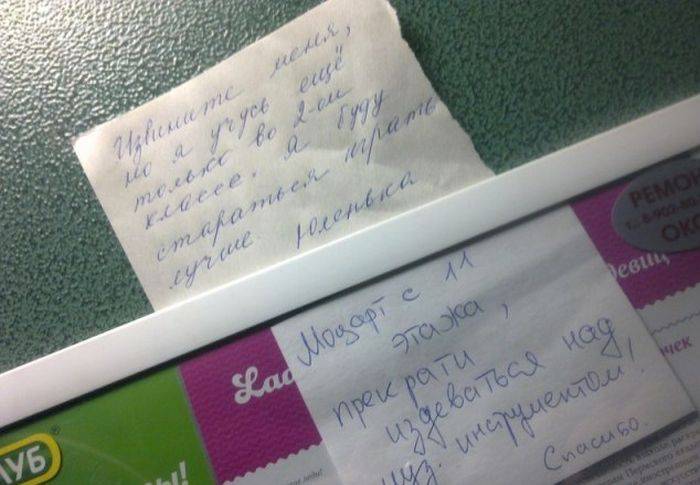 Извините меня,
но я учусь ещё
только во 2-ом
классе. Я буду
стараться играть
лучше Юленька
Моцарт с 11
этажа,
прекрати
издеваться над
муз. инструментом!
Спасибо.
РЕМОН
ОКО
девиц
чек
Lad
УБ
ы!